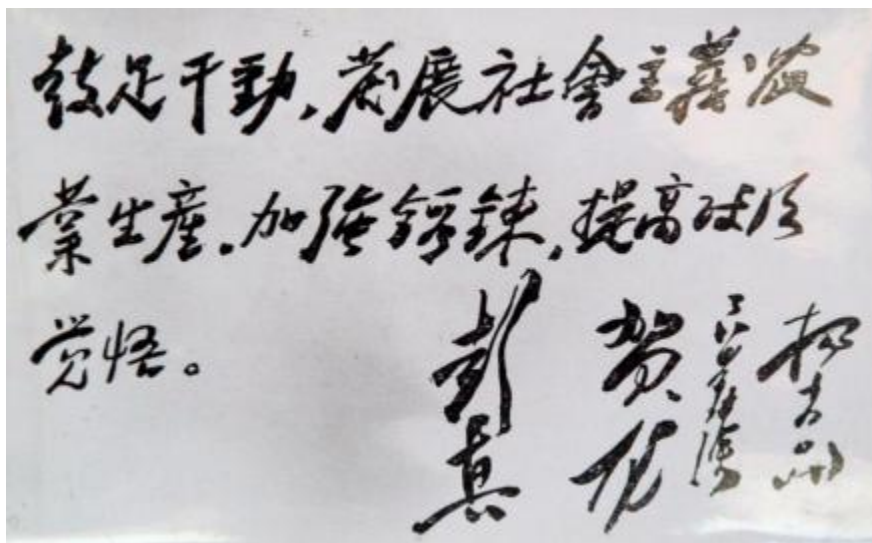 鼓足干勁,發展社會主義農
業生產。加強鍛鍊,提高政治
觉悟。
彭真
賀龙